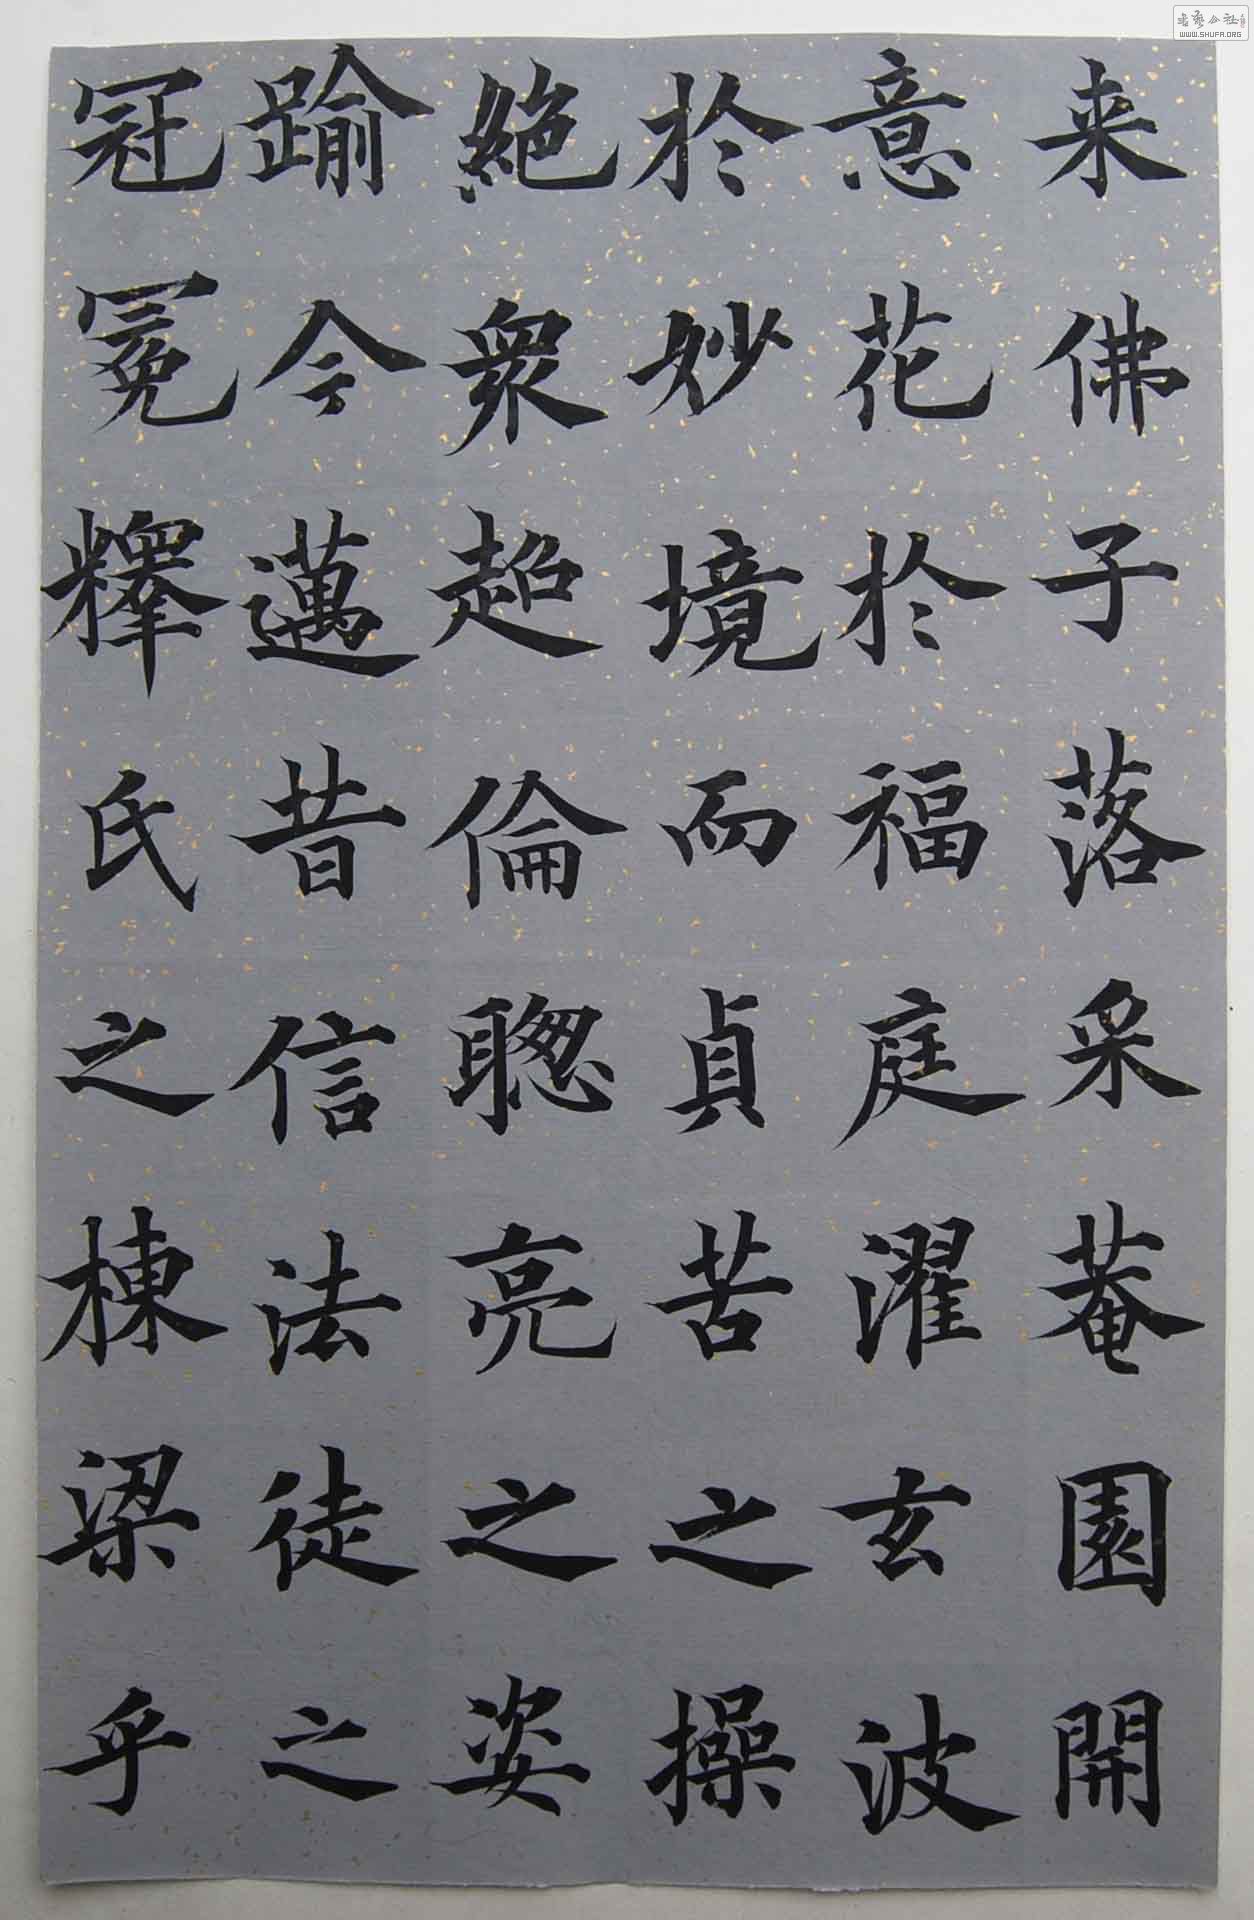 来佛子落采菴園開
意花於福庭濯玄波
於妙境而貞苦之操
絶衆超倫聰亮之姿
踰今邁昔信法徒之
冠冕釋氏之棟梁乎
WWW.SHUFA.ORG